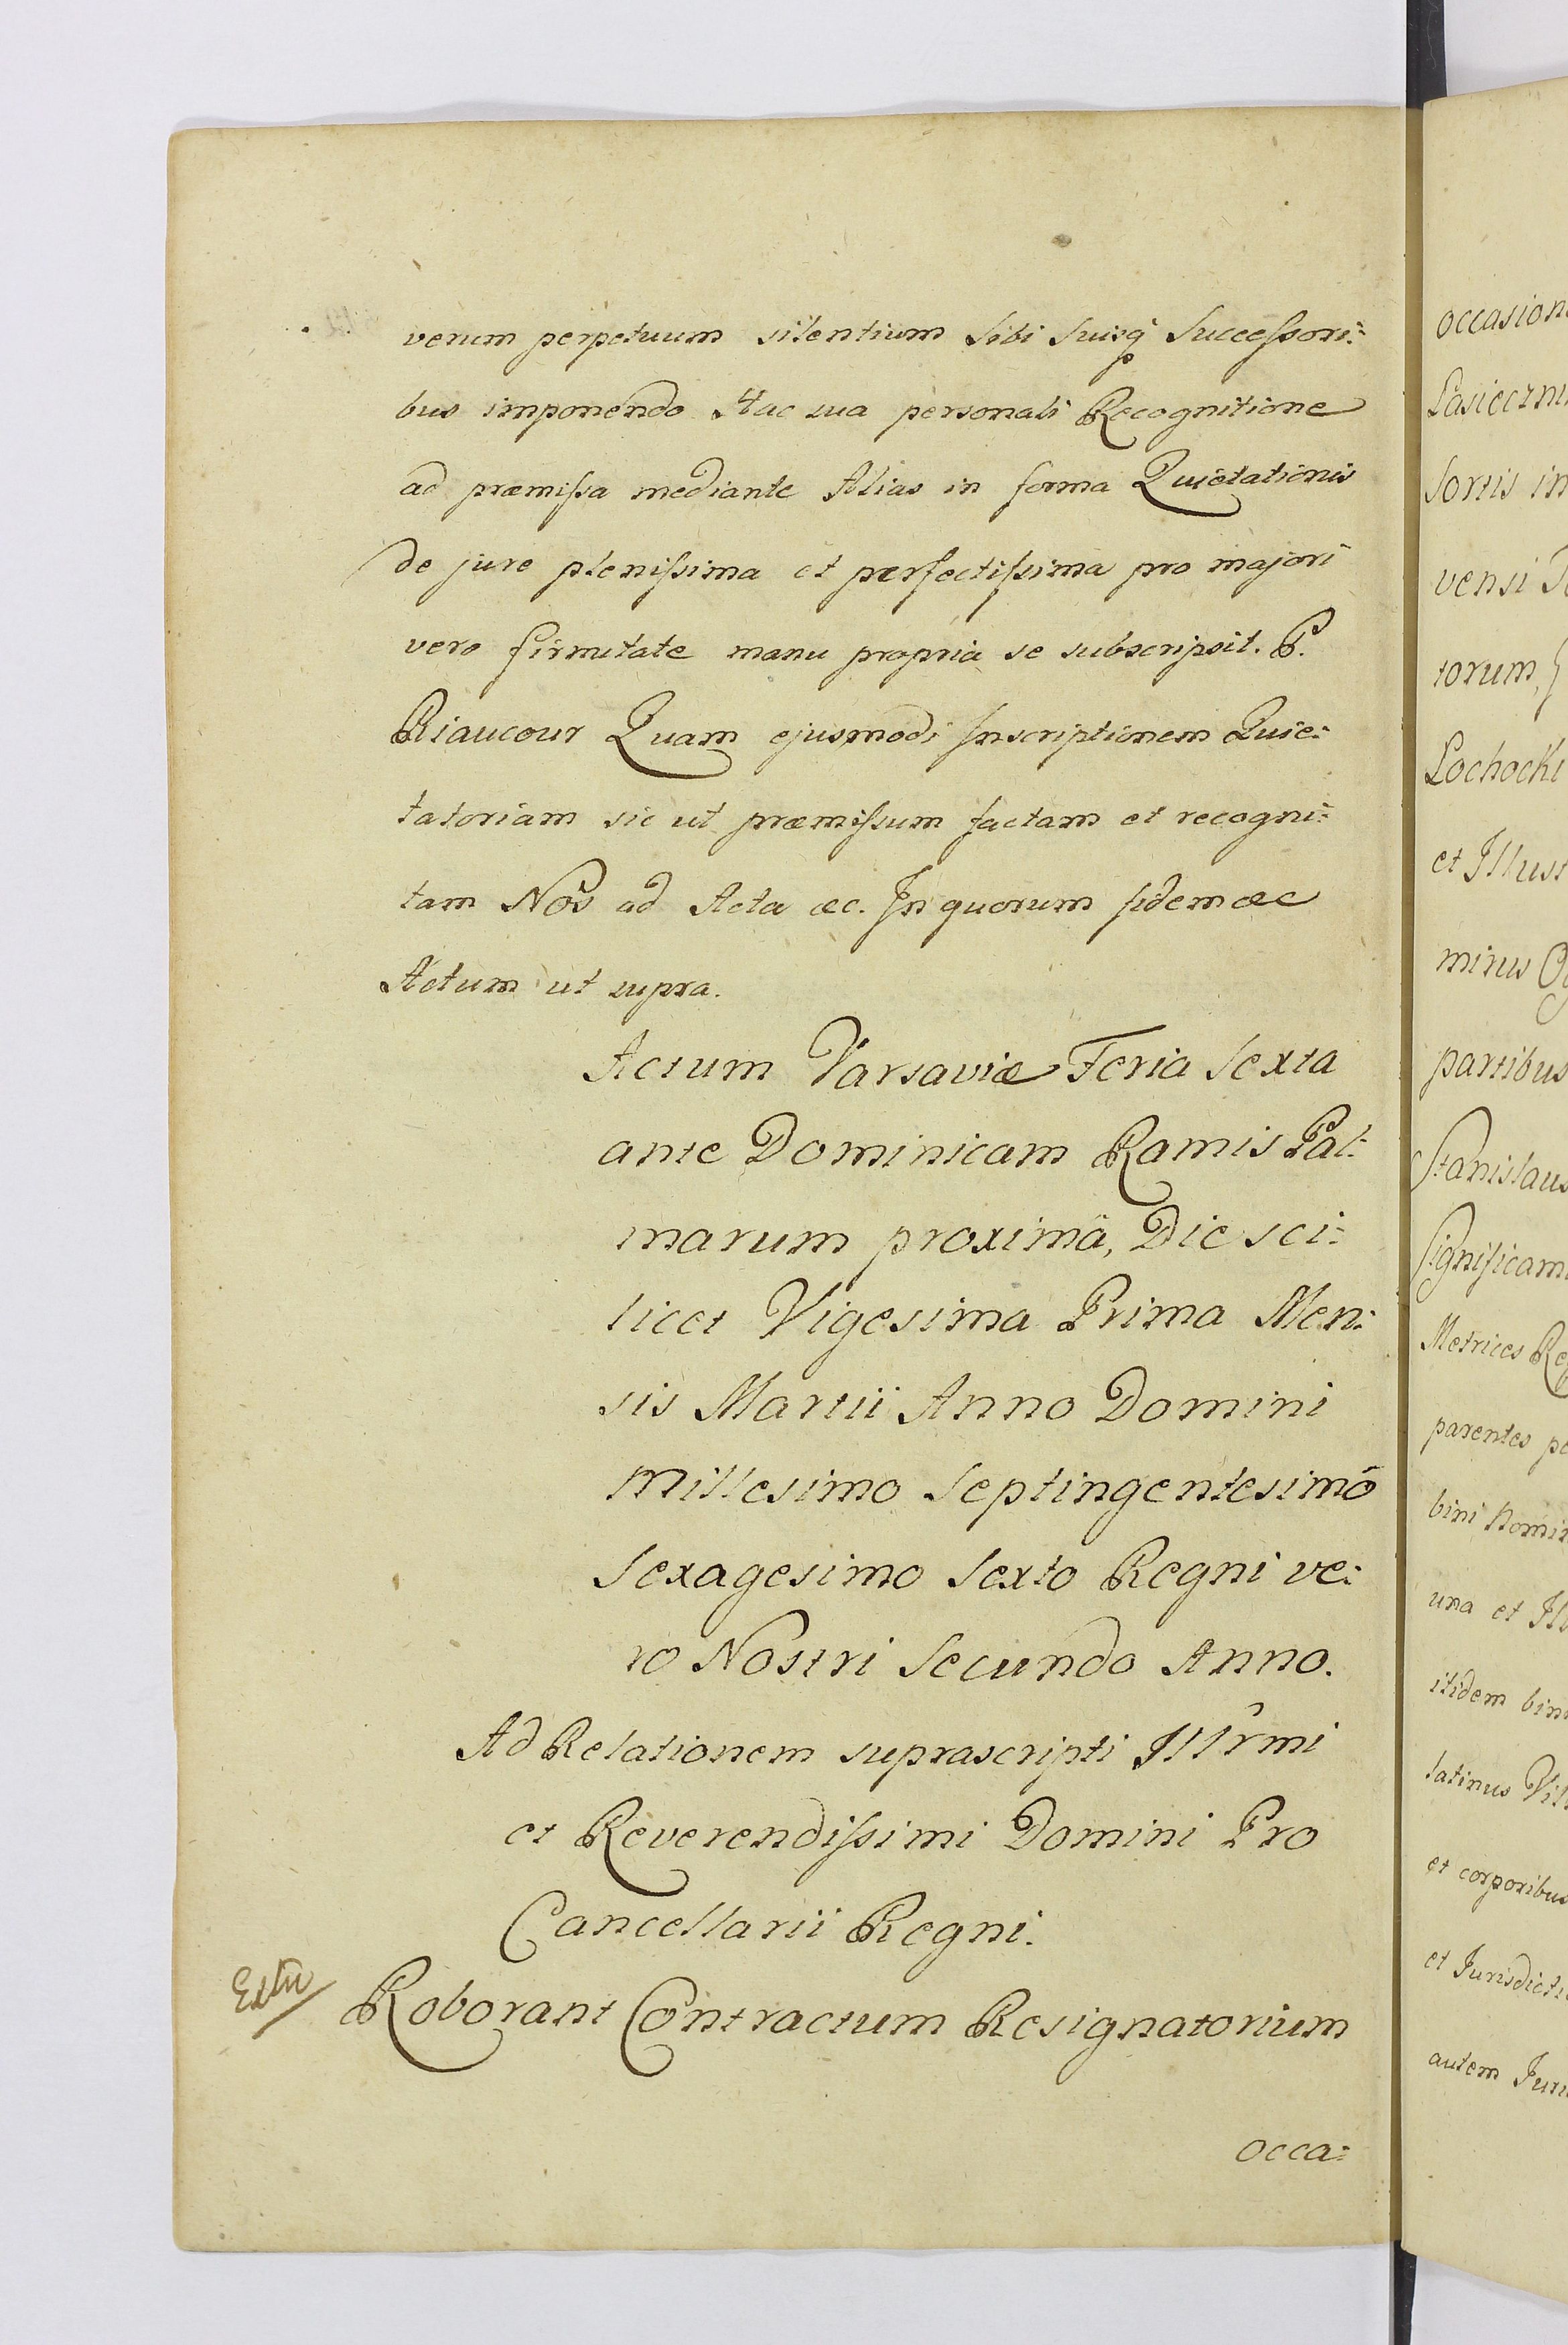 verum perpetuum silentium Sibi Suisq Successori:
bus imponendo Hac sua personali Recognitione
ad præmissa mediante Alias in forma Quietationis
de jure plenissima et perfectissima pro majori
vero firmitate manu propria se subscripsit. P.
Riaucour Quam ejusmodi Inscriptionem Quie:
tatoriam sic ut præmissum factam et recogni:
tam Nos ad Acta &c. In quorum fidem &c
Actum ut supra.
Actum Varsaviæ Feria Sexta
ante Dominicam Ramis Pal:
marum proximâ, Die sci:
licet Vigesima Prima Men:
sis Martii Anno Domini
Millesimo Septingentesimô
Sexagesimo Sexto Regni ve:
ro Nostri Secundo Anno.
Ad Relationem suprascripti Illrmi
et Reverendissimi Domini Pro
Cancellarii Regni.
Roborant Contractum Resignatorium
occa:
occasion
Pasieczn
Sortis in
vensi
torum,
Lochocki
et Illust
minus
partibus
Stanislaus
Significam
Metrices Reg
parentes pe
bini Nomin
una et Ill
itidem bin
latinus Vil
et corporibus
et Jurisdicti
autem Juri